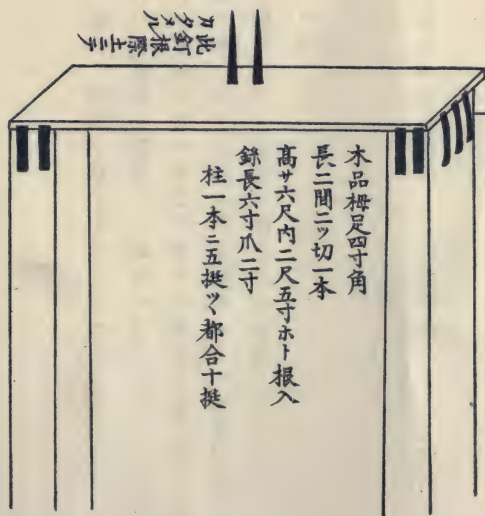 此釘根際土ニテ
カタメル
木品栂足四寸角
長二間二ッ切一本
高サ六尺内二尺五寸ホト根入
鎹長六寸爪二寸
柱一本ニ五挺ツヽ都合十挺